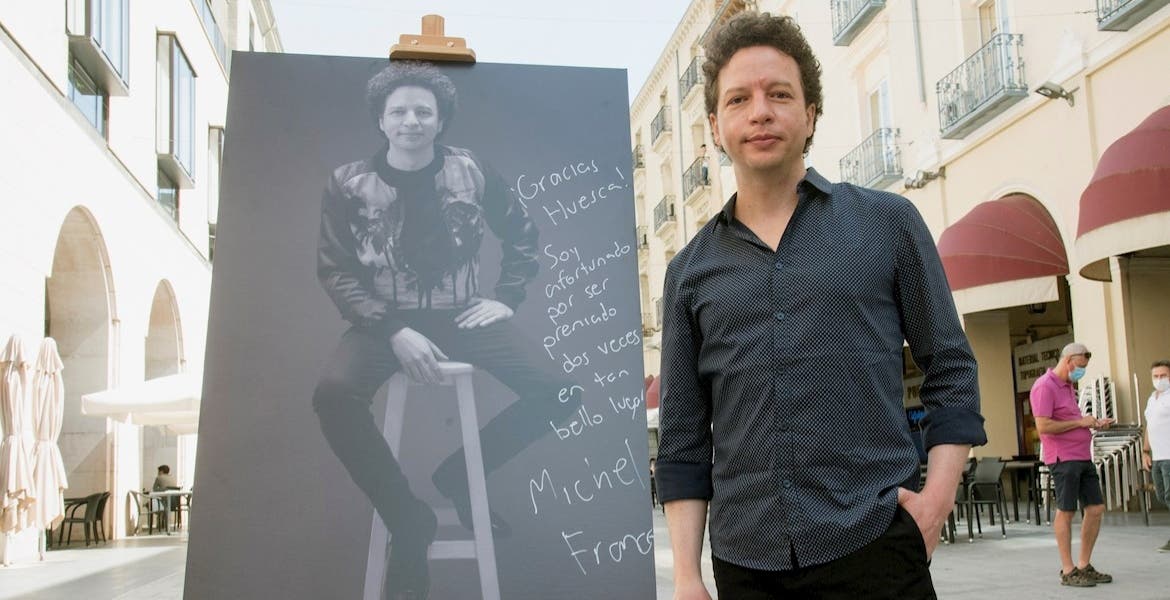 ¡Gracias
Huesca!
Soy
afortunado
por ser
premiado
dos veces
en tan
bello lugar
Michel
Franco
MATERIAL TÉCNICO